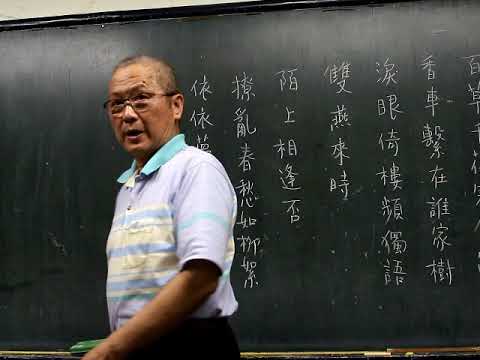 百草千
香車繫在誰家樹
淚眼倚樓頻獨語
雙燕來時
陌上相逢否
撩亂春愁如柳絮
依依